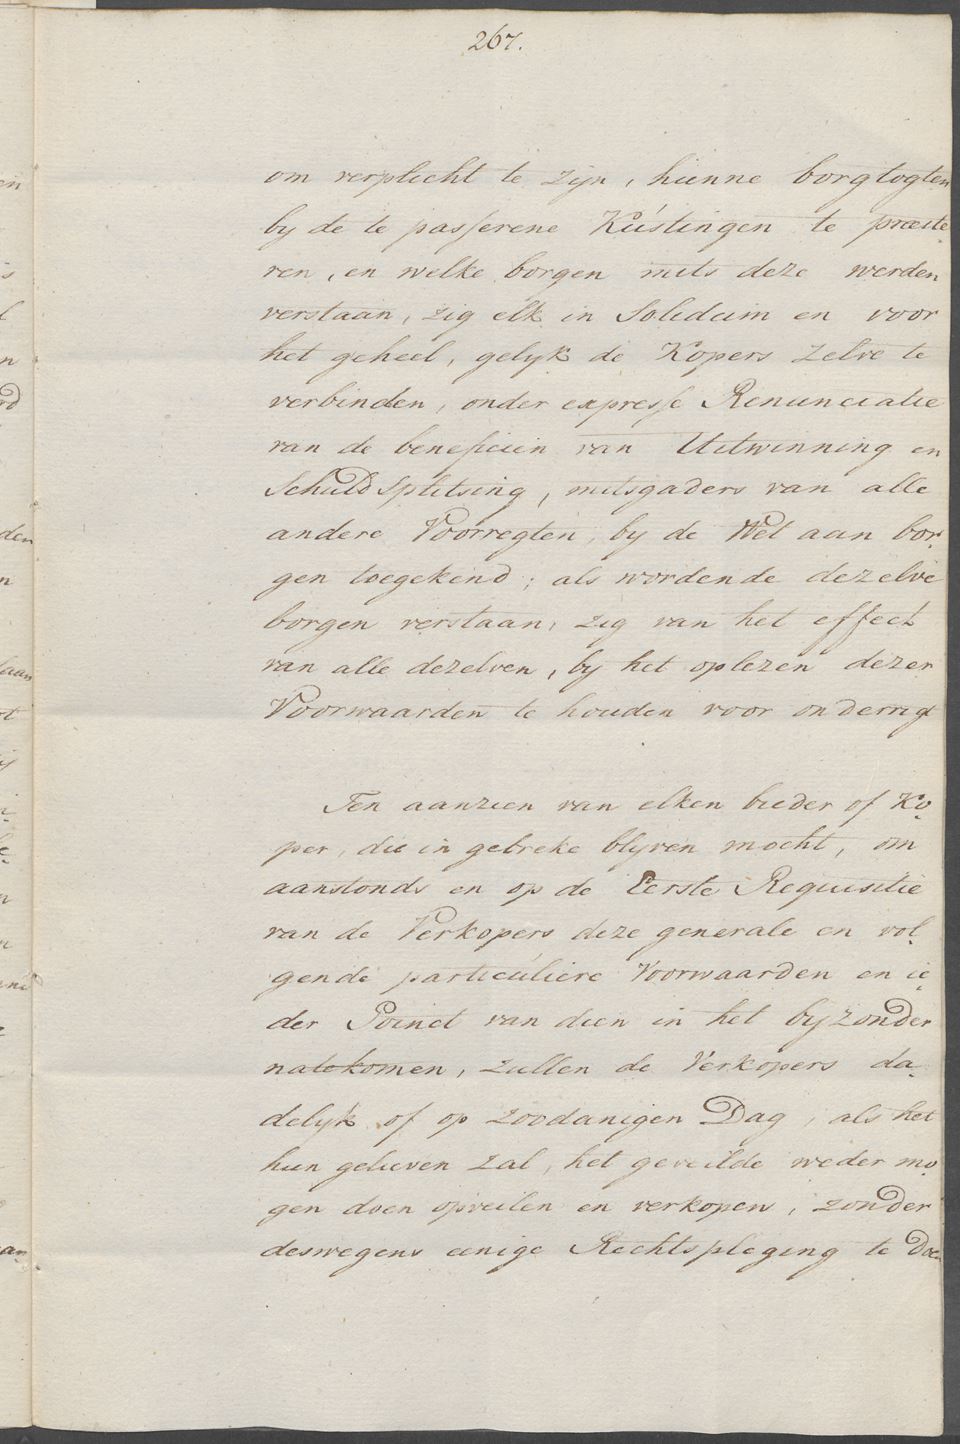 267.
om verplicht te zijn, hunne borgtogten
by de te passerene Kústingen te præste
ren, en welke borgen mits deze werden
verstaan, zig elk in Solidum en voor
het geheel, gelyk de Kopers zelve te
verbinden, onder expresse Renunciatie
van de beneficien van Uitwinning en
Schuldsplitsing, mitsgaders van alle
andere Voorregten, by de Wet aan bor„
gen toegekend; als wordende dezelve
borgen verstaan, zig van het effect
van alle dezelven, by het oplezen dezer
Voorwaarden te houden voor onderrigt
Ten aanzien van elken bieder of Ko„
per, die in gebreke blyven mocht, om
aanstonds en op de Eerste Requisitie
van de Verkopers deze generale en vol„
gende particúliere Voorwaarden en ie„
der Poinct van dien in het byzonder
natekomen, zullen de Verkopers da„
delyk of op zoodanigen Dag, als het
hun gelieven zal, het geveilde weder mo„
gen doen opveilen en verkopen, zonder
deswegens eenige Rechtspleging te doen